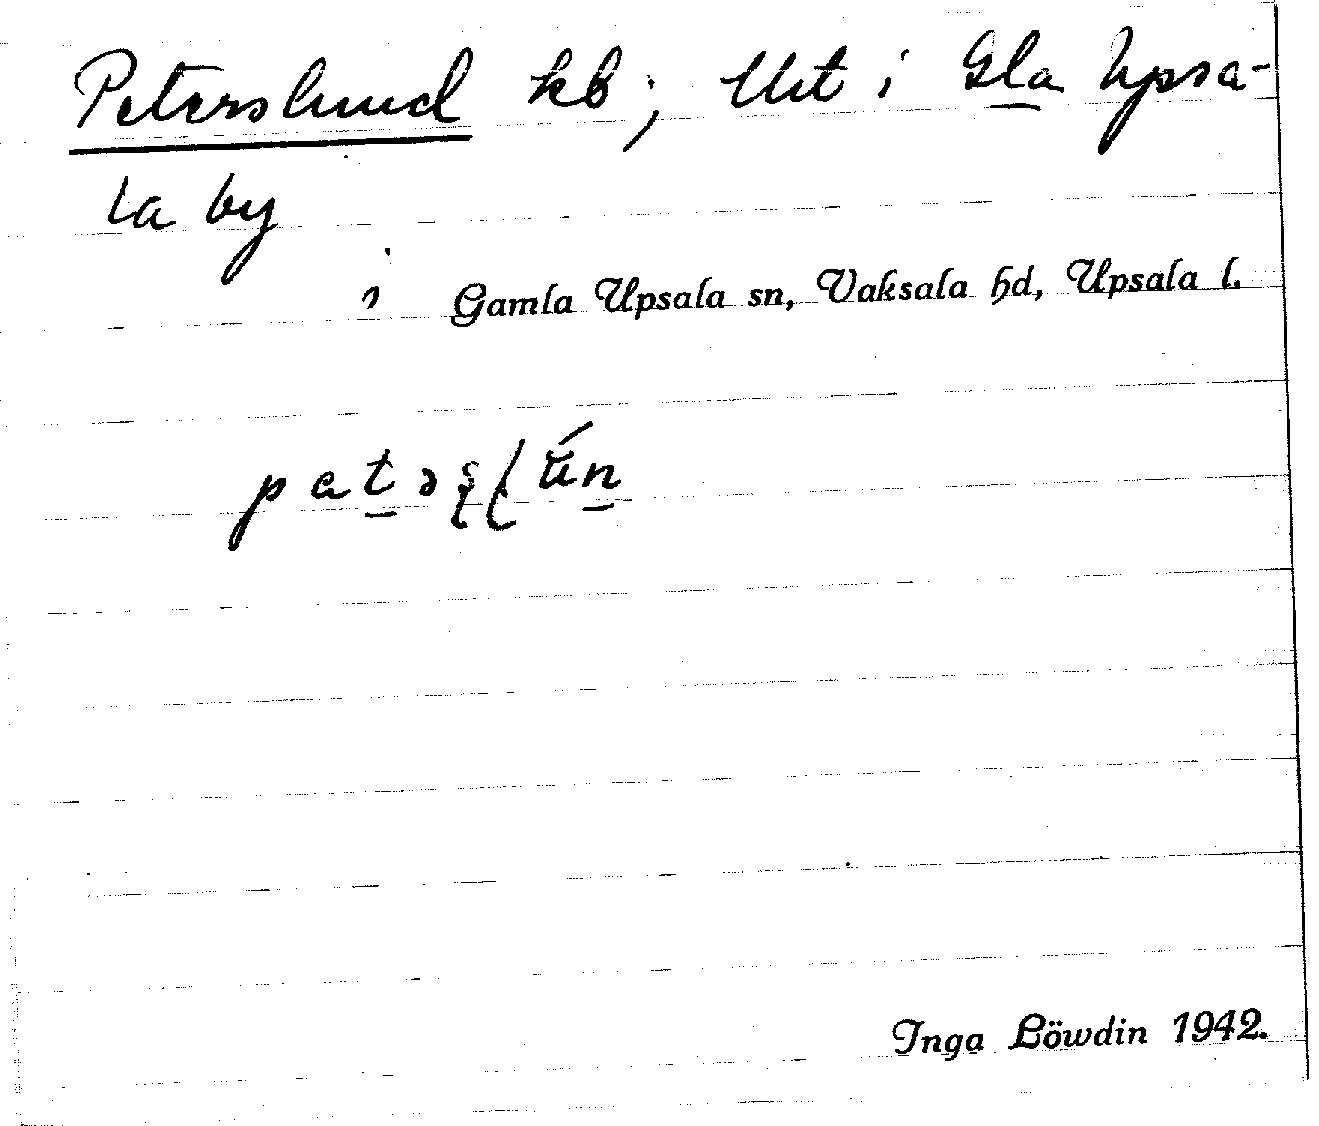 Peterslund kb; Utt i Gla Upsa-
la by
i Gamla Upsala sn, Vaksala hd, Upsala l.
Inga Löwdin 1942.